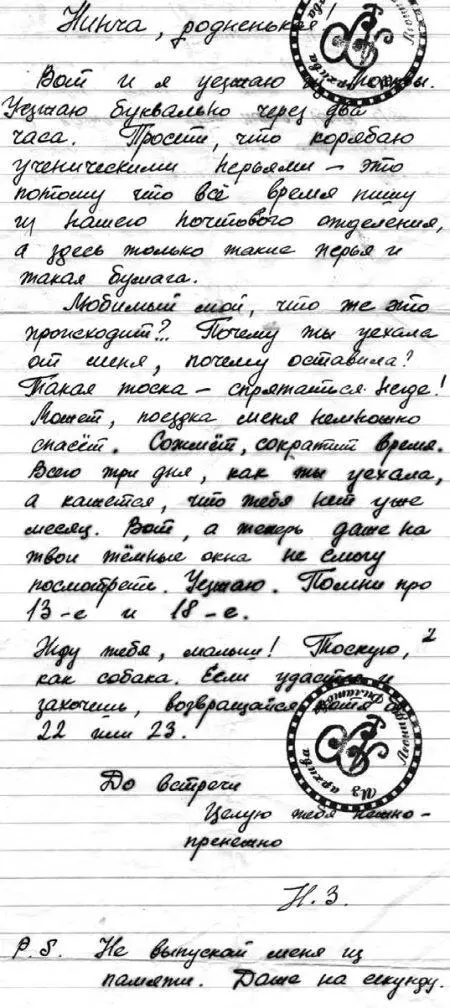 Нинча, родненькая
Вот и я уезжаю из Москвы.
Уезжаю буквально через два
часа. Прости, что корябаю
ученическими перьями – это
потому что всё время пишу
из нашего почтового отделения,
а здесь только такие перья и
такая бумага.
Любимый мой, что же это
происходит?.. Почему ты уехала
от меня, почему оставила?
Такая тоска – спрятаться негде!
Может, поездка меня немножко
спасёт. Сожмёт, сократит время.
Всего три дня, как ты уехала,
а кажется, что тебя нет уже
месяц. Вот, а теперь даже на
твои тёмные окна не смогу
посмотреть. Уезжаю. Помни про
13-е и 18-е.
Жду тебя, малыш! Тоскую,
как собака. Если удастся и
захочешь, возвращайся хотя
22 или 23.
Из архива
До встречи
Целую тебя нежно-
пренежно
Н. З.
P.S. Не выпускай меня из
памяти. Даже на секунду.